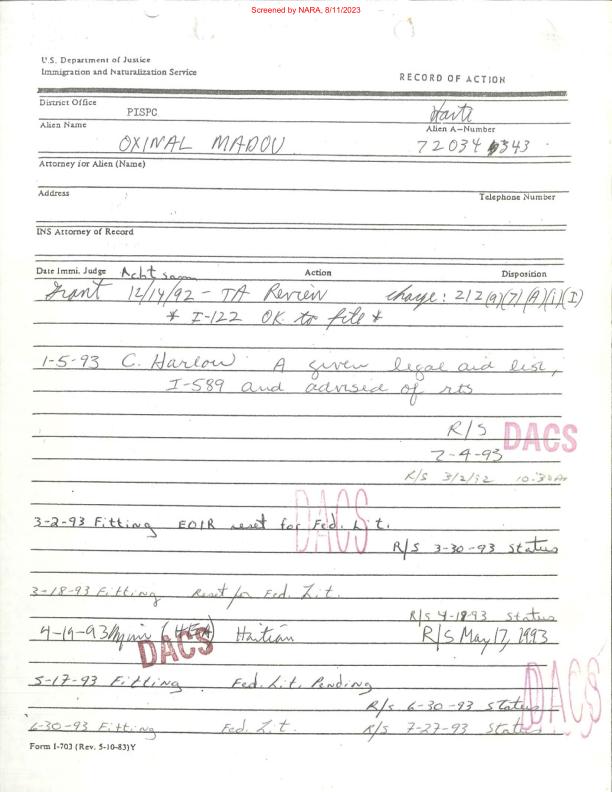 Screened by NARA, 8/11/2023
U.S. Department of Justice
Immigration and Naturalization Service
RECORD OF ACTION
District Office
PISPC
Alien Name
Alien A-Number
OXINAL MADOU
72034 343
Attorney for Alien (Name)
Address
Telephone Number
INS Attorney of Record
Date Immi. Judge
Action
Disposition
Grant 12/14/92 - TA Review charge: 212(a)(7)(A)(i)(I)
* I-122 OK to file *
1-5-93 C. Harlow A given legal aid list,
I-589 and advised of rts
R/S DACS
2-4-93
R/S 3/2/92 10:30 AM
DACS
3-2-93 Fitting EOIR reset for Fed. Lit.
R/S 3-30-93 Status
3-18-93 Fitting Reset for Fed. Lit.
R/S 4-19-93 Status
4-19-93 Haitian R/S May 17, 1993
DACS
5-17-93 Fitting Fed. Lit. Pending
R/S 6-30-93 Status
DACS
6-30-93 Fitting Fed. Lit. R/S 7-27-93 Status
Form I-703 (Rev. 5-10-83)Y